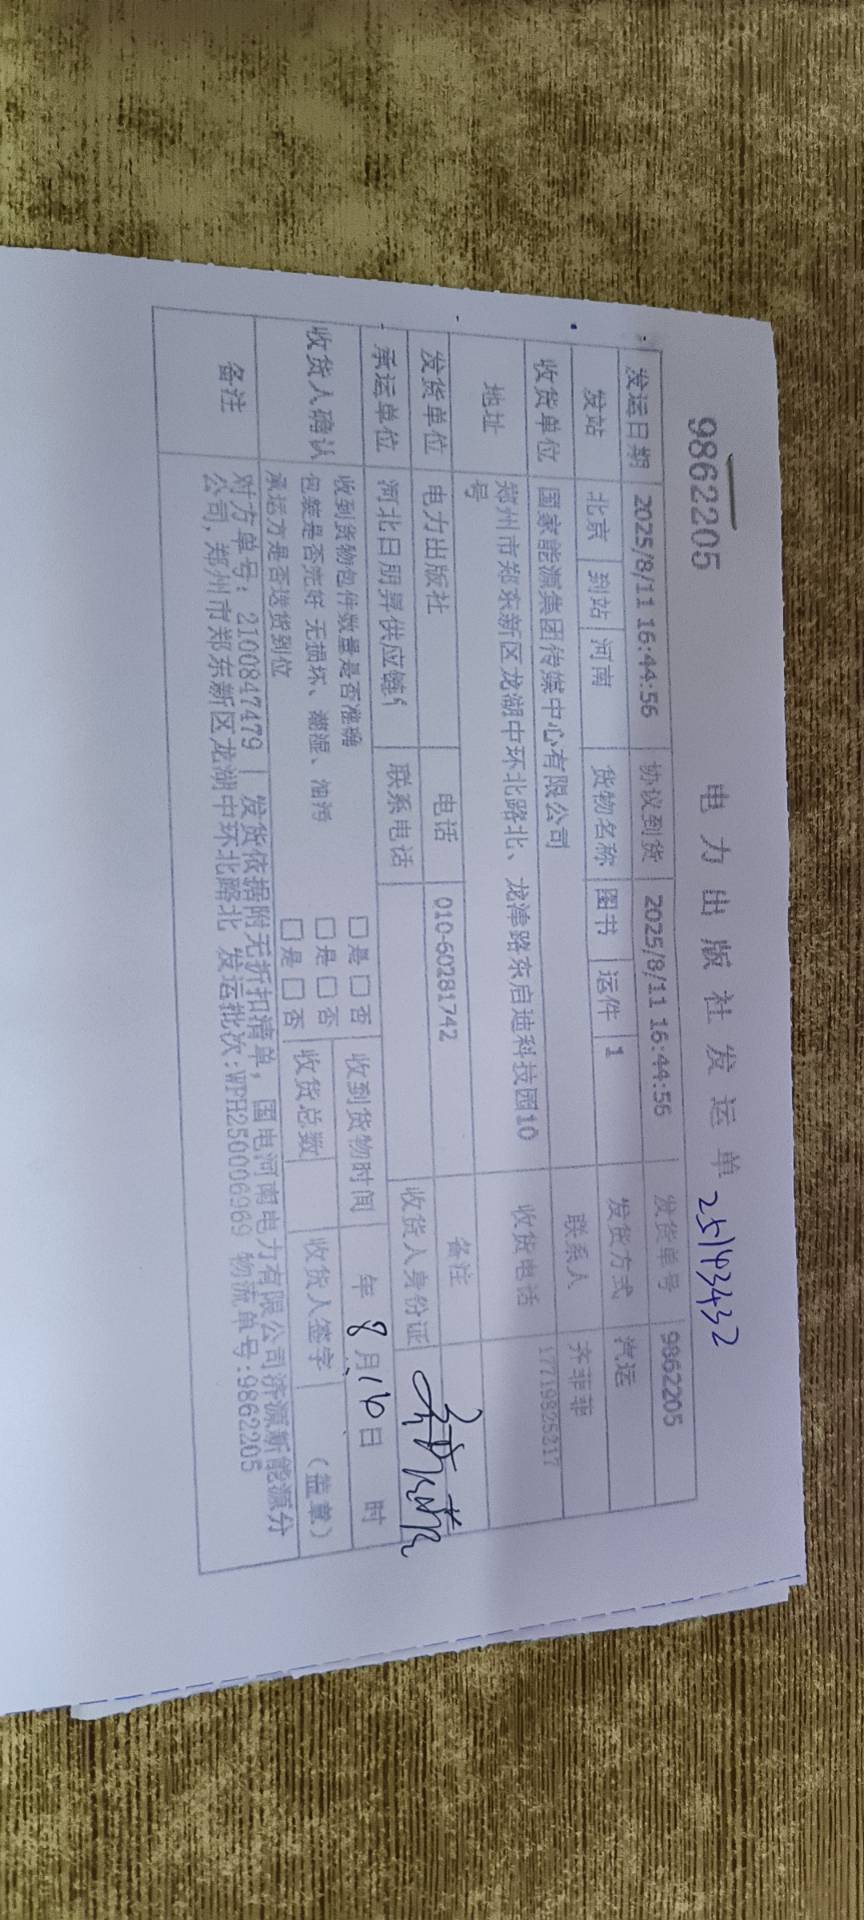 9862205
电力出版社发运单 25143432
发运日期 2025/8/11 16:44:56 协议到货 2025/8/11 16:44:56 发货单号 9862205
发站 北京 到站 河南 货物名称 图书 运件 1 发货方式 汽运
收货单位 国家能源集团传媒中心有限公司 联系人 齐菲菲
地址 郑州市郑东新区龙湖中环北路北、龙津路东启迪科技园10号 收货电话 17719825217
发货单位 电力出版社 电话 010-60281742 备注
承运单位 河北日朋昇供应链 联系电话 收货人身份证
收货人确认 收到货物包件数量是否准确 □是 □否 收到货物时间 年 8月16日 时
包装是否完好 无损坏、潮湿、油污 □是 □否 收货总数 收货人签字 (盖章)
承运方是否送货到位 □是 □否
备注 对方单号: 2100847479 | 发货依据附无折扣清单, 国电河南电力有限公司济源新能源分
公司, 郑州市郑东新区龙湖中环北路北 发运批次:WPH250006969 物流单号:9862205